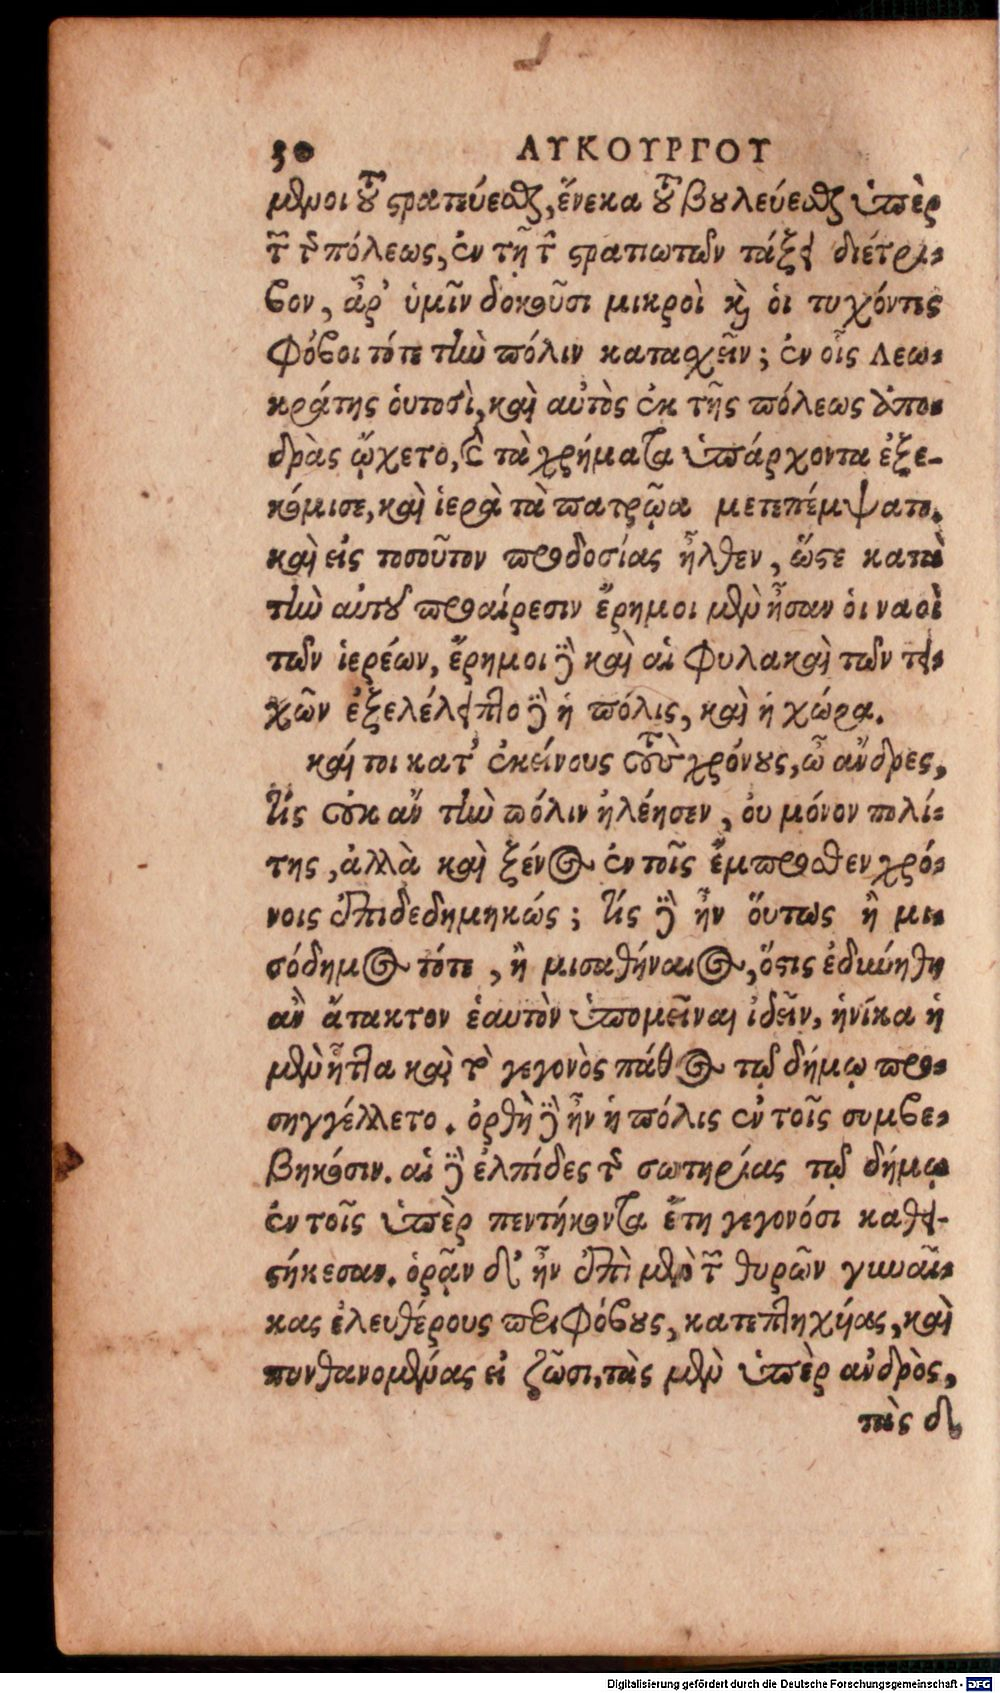 30 ΛΥΚΟΥΡΓΟΥ
μένοι τοῦ στρατεύεσθαι, ἕνεκα τοῦ βουλεύεσθαι ὑπὲρ
τῆς πόλεως, ἐν τῇ τῶν στρατιωτῶν τάξει διέτρι-
βον, ἆρ' ὑμῖν δοκοῦσι μικροὶ καὶ οἱ τυχόντες
φόβοι τότε τὴν πόλιν κατασχεῖν; ἐν οἷς Λεω-
κράτης οὑτοσὶ, καὶ αὐτὸς ἐκ τῆς πόλεως ἀπο-
δρὰς ᾤχετο, καὶ τὰ χρήματα ὑπάρχοντα ἐξε-
κόμισε, καὶ ἱερὰ τὰ πατρῷα μετεπέμψατο.
καὶ εἰς τοσοῦτον προδοσίας ἦλθεν, ὥστε κατὰ
τὴν αὐτοῦ προαίρεσιν ἔρημοι μὲν ἦσαν οἱ ναοὶ
τῶν ἱερέων, ἔρημοι δὲ καὶ αἱ φυλακαὶ τῶν τει-
χῶν ἐξελέλειπτο δὲ ἡ πόλις, καὶ ἡ χώρα.
καίτοι κατ' ἐκείνους τοὺς χρόνους, ὦ ἄνδρες,
τίς οὐκ ἂν τὴν πόλιν ἠλέησεν, οὐ μόνον πολί-
της, ἀλλὰ καὶ ξένος ἐν τοῖς ἔμπροσθεν χρό-
νοις ἐπιδεδημηκώς; τίς δὲ ἦν οὕτως ἢ μι-
σόδημος τότε, ἢ μισαθήναιος, ὅστις ἐδυνήθη
ἂν ἄτακτον ἑαυτὸν ὑπομεῖναι ἰδεῖν, ἡνίκα ἡ
μὲν ἧττα καὶ τὸ γεγονὸς πάθος τῷ δήμῳ προ-
σηγγέλλετο. ὀρθὴ δὲ ἦν ἡ πόλις ἐν τοῖς συμβε-
βηκόσιν. αἱ δὲ ἐλπίδες τῆς σωτηρίας τῷ δήμῳ
ἐν τοῖς ὑπὲρ πεντήκοντα ἔτη γεγονόσι καθει-
στήκεσαν. ὁρᾷν δ' ἦν ἐπὶ μὲν τῶν θυρῶν γυναῖ-
κας ἐλευθέρους περιφόβους, κατεπτηχυίας, καὶ
πυνθανομένας εἰ ζῶσι, τὰς μὲν ὑπὲρ ἀνδρὸς,
τὰς δ'
Digitalisierung gefördert durch die Deutsche Forschungsgemeinschaft - DFG